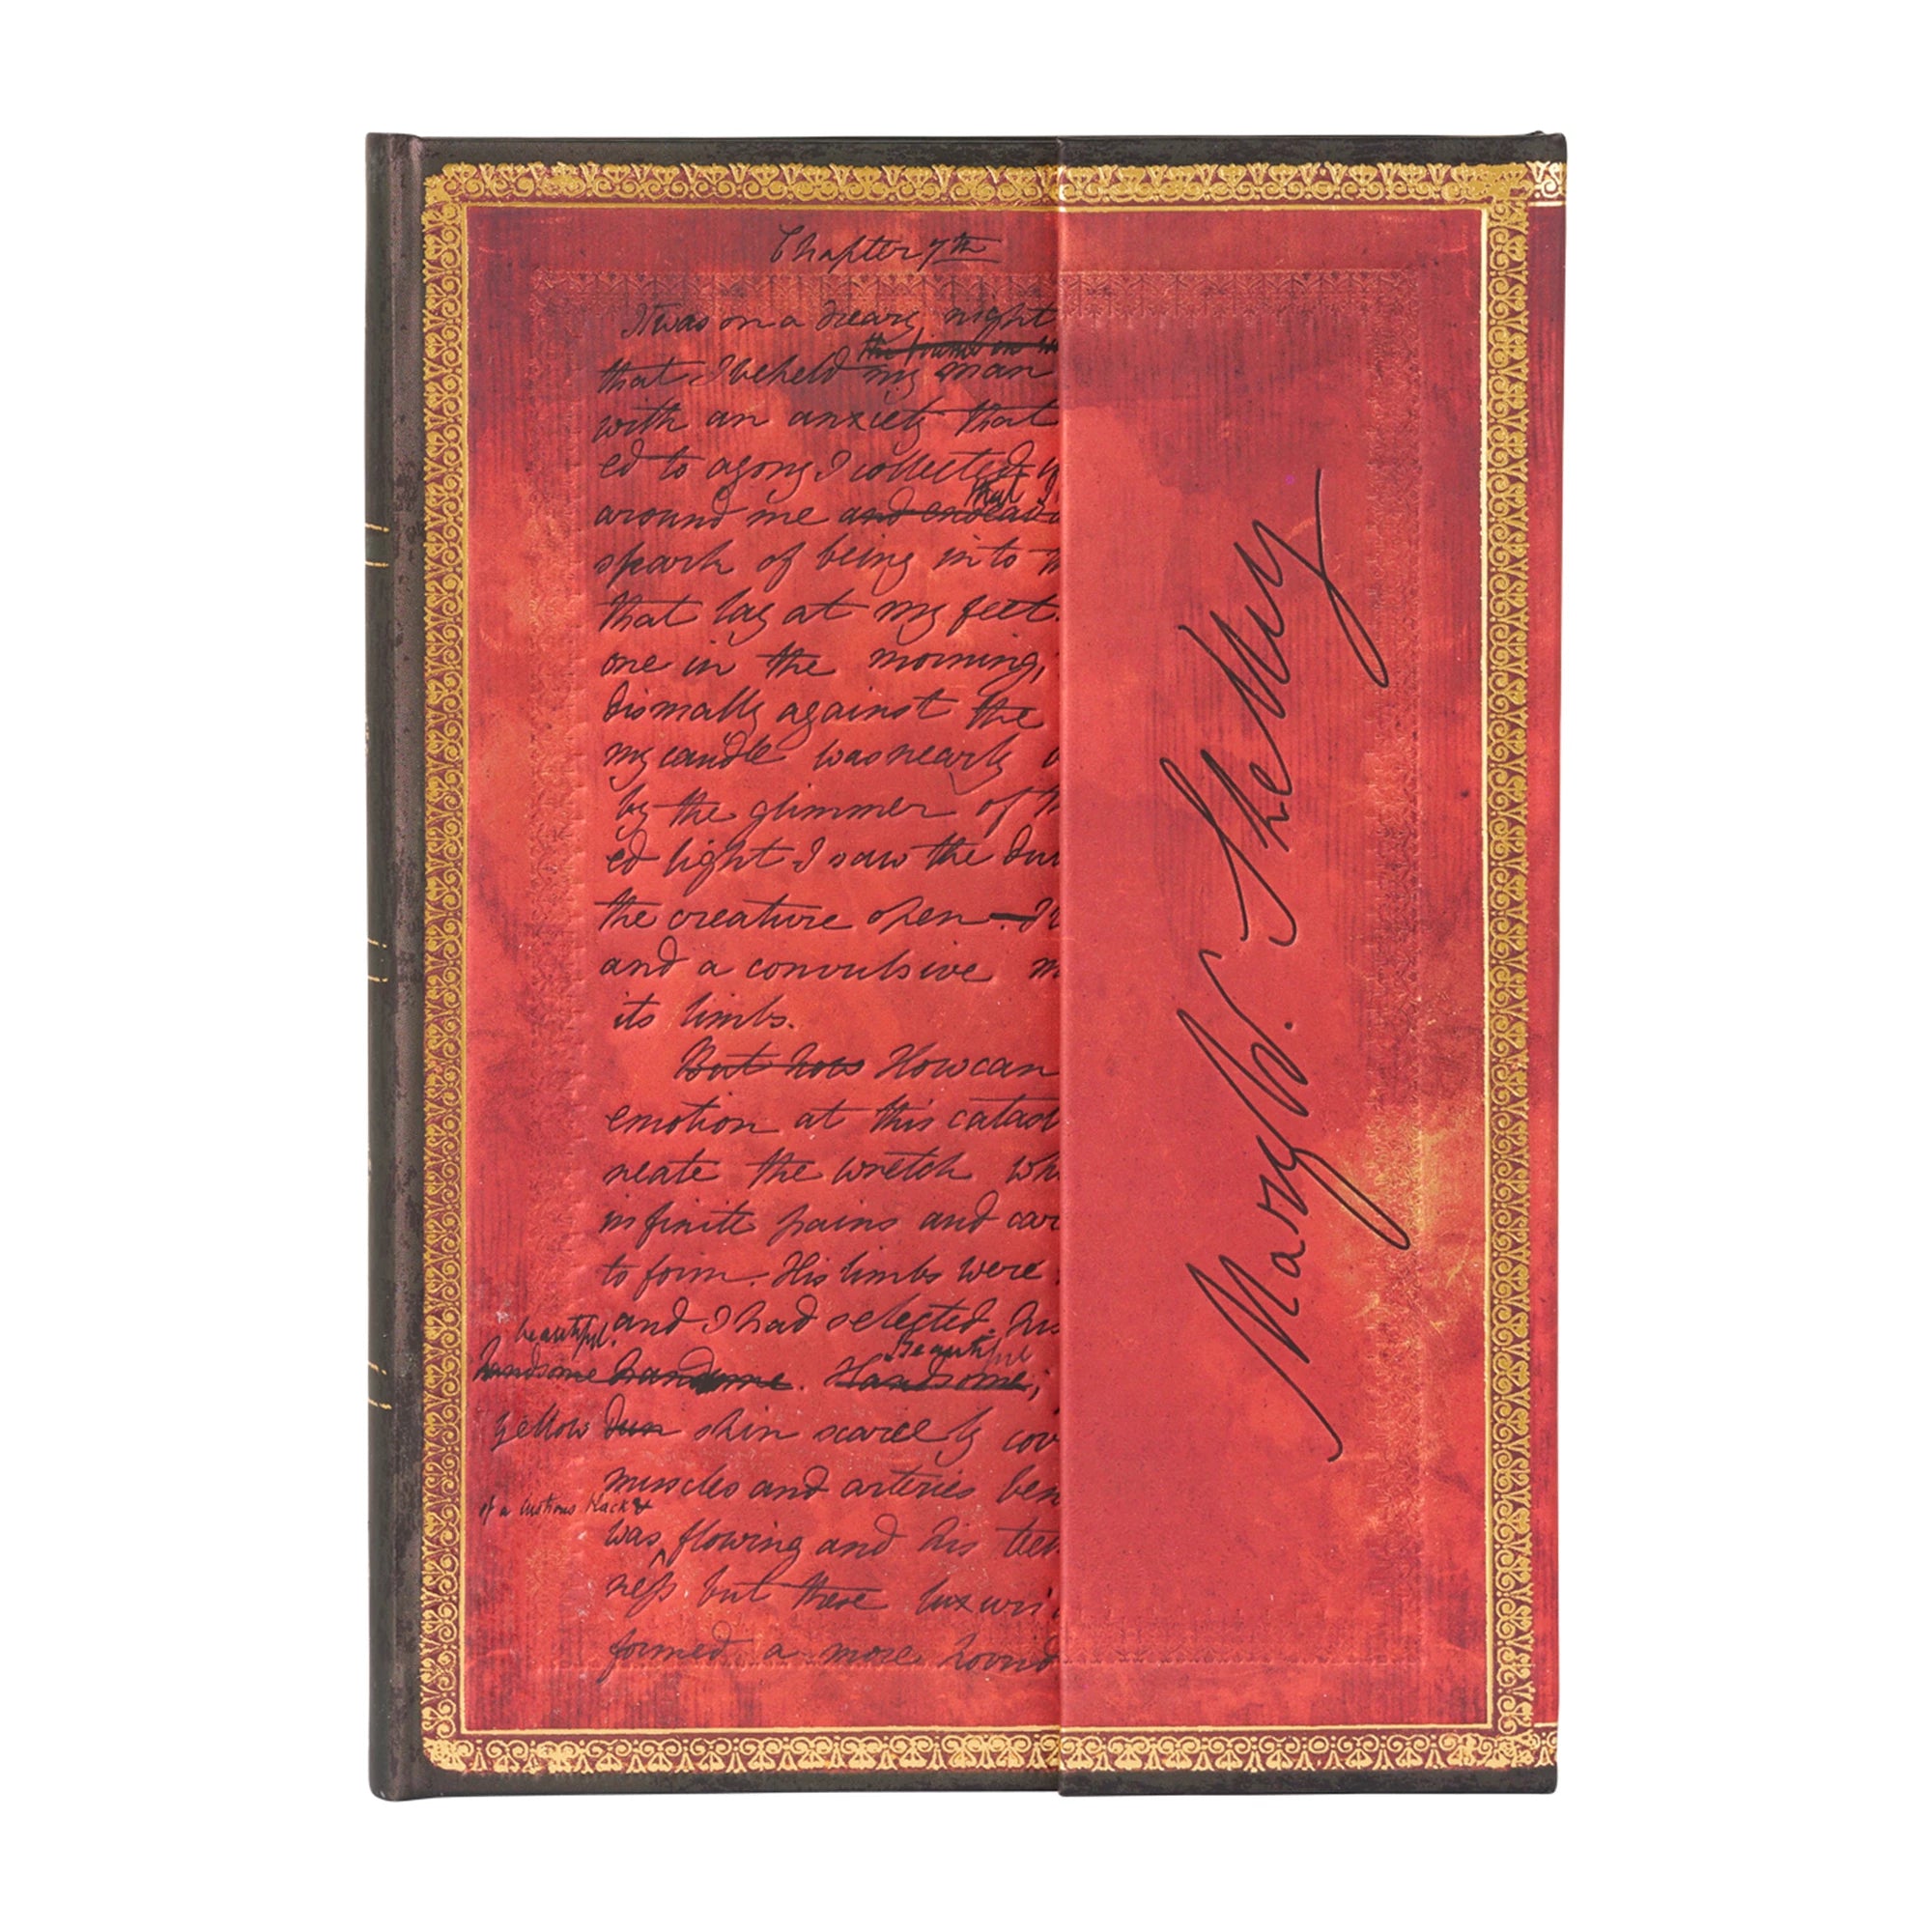 Chapter 7th
It was on a dreary night
that I beheld my man
with an anxiety that
ed to agony I collected
that I
around me and endeavo
spark of being into
that lay at my feet.
one in the morning,
dismally against the
my candle was nearly
by the glimmer of
ed light I saw the dul
the creature open
and a convulsive
its limbs.
But how How can
emotion at this catast
neate the wretch wh
infinite pains and car
to form. His limbs were
and I had selected his
beautiful.
Beautiful
handsome handsome. Handsome;
yellow dun skin scarcely cov
muscles and arteries ben
of a lustrous black &
was flowing and his teet
ness but these luxuri
formed a more horrid
Mary W. Shelley